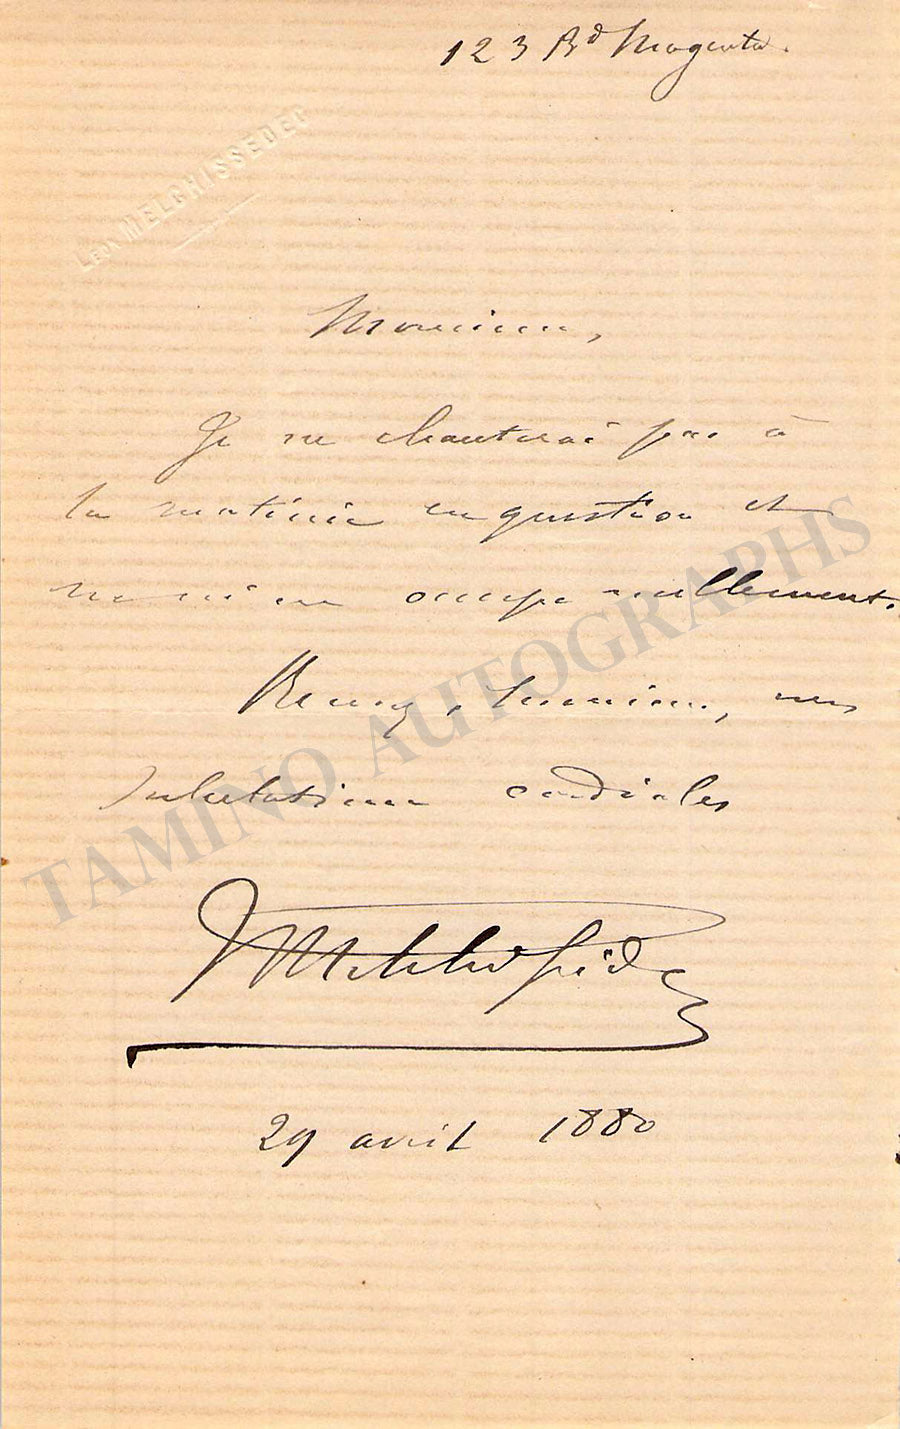 123 Bd Magenta.
LÉON MELCHISSEDEC
Monsieur,
Je ne chanterai pas à
la matinée en question et
ne m'en occupe nullement.
Recevez, Monsieur, mes
salutations cordiales
Melchissédec
29 avril 1880
TAMINO AUTOGRAPHS